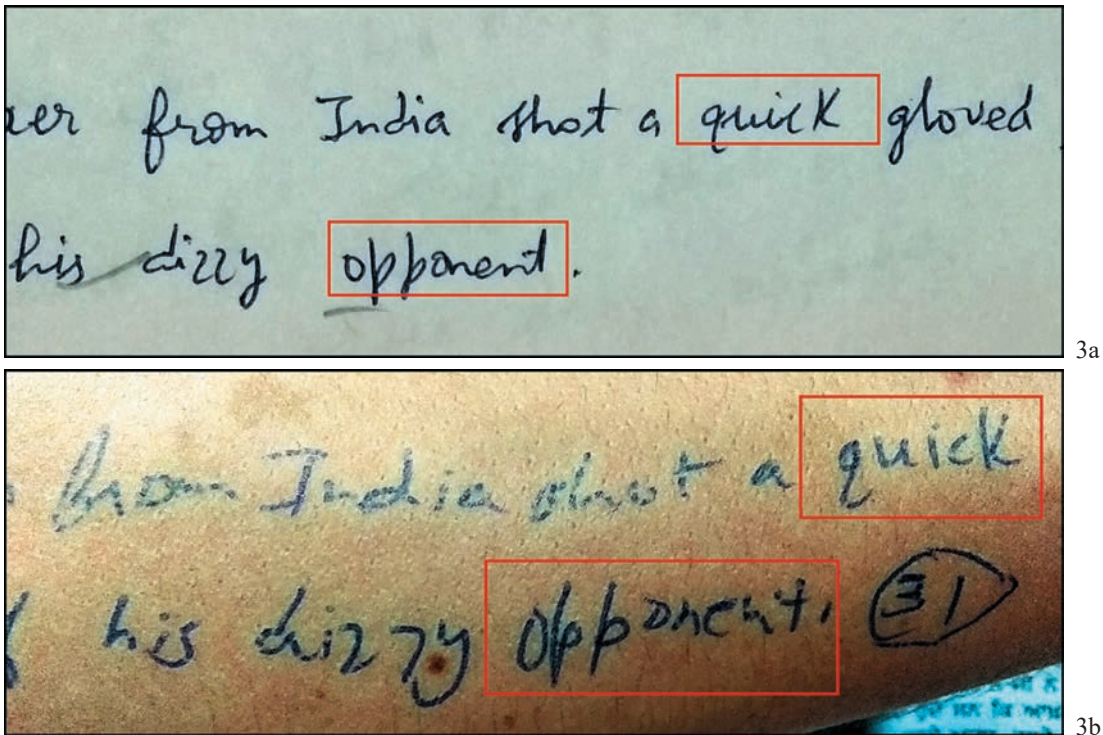 xer from India shot a quick gloved
his dizzy opponent.
3a
from India shot a quick
his dizzy opponent. 31
3b